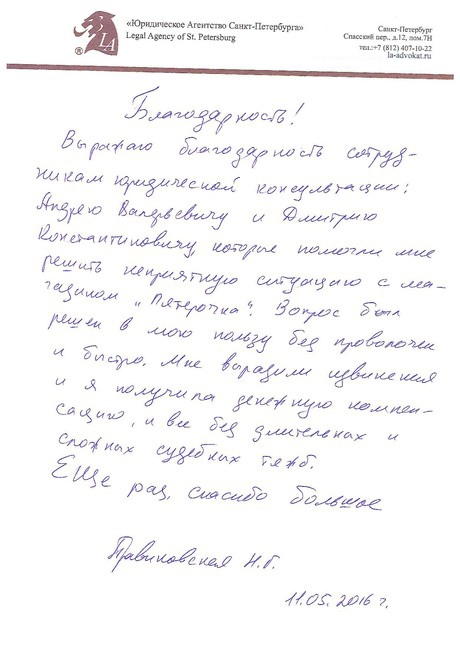 «Юридическое Агентство Санкт-Петербурга»
Legal Agency of St. Petersburg
Санкт-Петербург
Спасский пер., д.12, пом.7Н
тел.:+7 (812) 407-10-22
la-advokat.ru
LA
®
Благодарность!
Выражаю благодарность сотруд-
никам юридической консультации:
Андрею Валерьевичу и Дмитрию
Константиновичу, которые помогли мне
решить неприятную ситуацию с ма-
газином „Пятерочка". Вопрос был
решен в мою пользу без проволочек
и быстро. Мне выразили извинения
и я получила денежную компен-
сацию, и все без длительных и
сложных судебных тяжб.
Еще раз, спасибо большое
Н.Г.
11.05.2016 г.